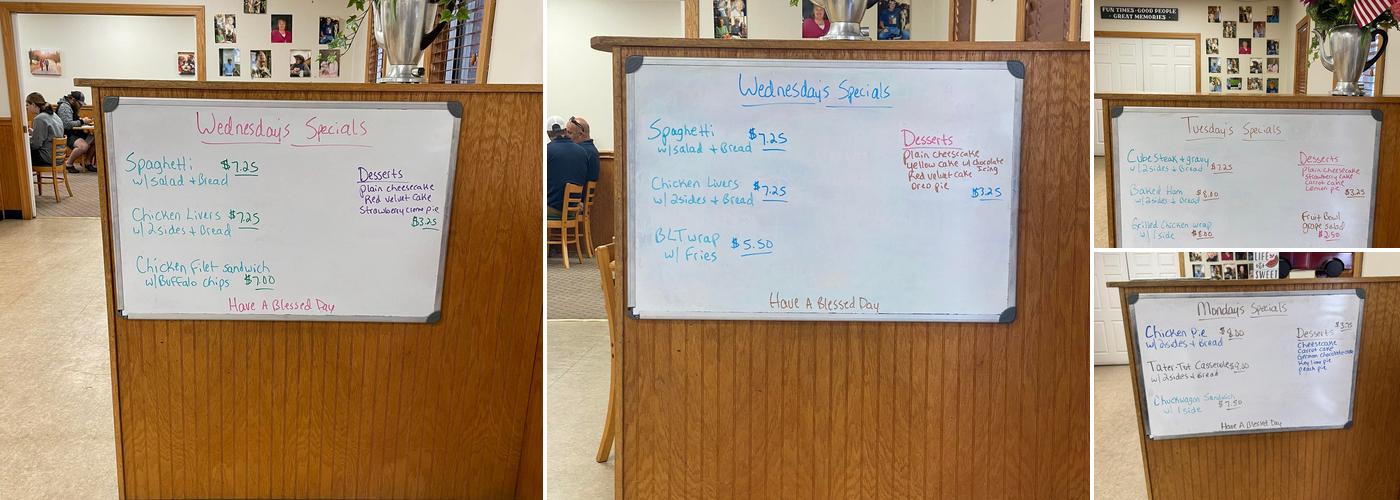 Wednesday's Specials
Spaghetti $7.25
w/salad + Bread
Chicken Livers $7.25
w/ 2sides + Bread
Chicken Filet sandwich
w/Buffalo chips $7.00
Desserts
plain cheesecake
Red velvet cake
Strawberry creme pie
$3.25
Have A Blessed Day
Wednesday's Specials
Spaghetti $7.25
w/salad + Bread
Chicken Livers $7.25
w/ 2sides + Bread
BLT wrap $5.50
w/ Fries
Desserts
Plain cheesecake
yellow cake w/ chocolate
Icing
Red velvet cake
oreo pie
$3.25
Have A Blessed Day
FUN TIMES • GOOD PEOPLE
• GREAT MEMORIES •
Tuesday's Specials
Cube Steak + gravy
w/ 2sides + Bread $7.25
Baked Ham $8.00
w/ 2sides + Bread
Grilled Chicken wrap
w/ 1 side $8.00
Desserts
Plain cheesecake
Strawberry cake
Carrot cake
Lemon pie $3.25
Fruit Bowl
grape salad
$2.50
LIFE
SWEET
Monday's Specials
Chicken Pie $8.00
w/ 2sides + Bread
Tater-Tot Casserole
w/ 2sides + Bread
Chuckwagon Sandwich
w/ 1 side $7.50
Desserts
Cheesecake
Carrot cake
German chocolate cake
Key lime pie
peach pie
Have A Blessed Day